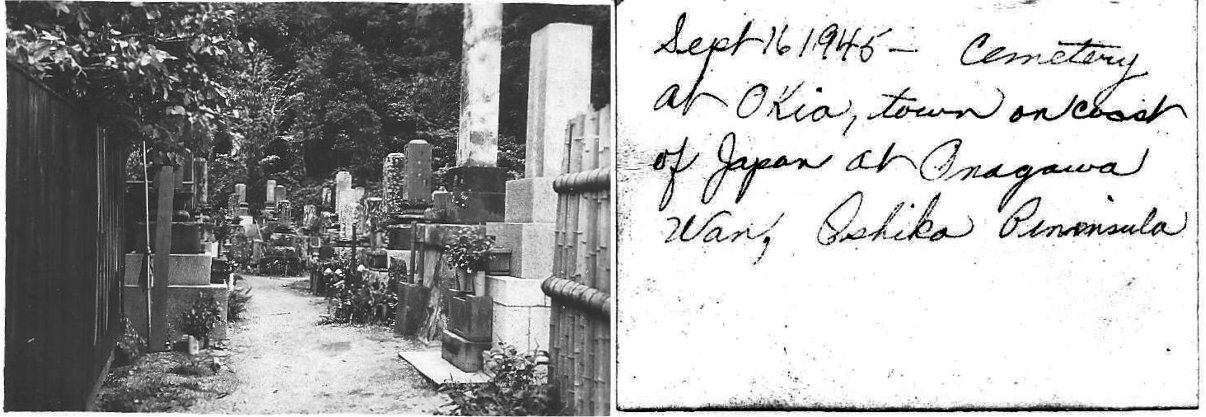 Sept 16 1945 - Cemetery
at Okia, town on coast
of Japan at Onagawa
Wan, Oshika Peninsula